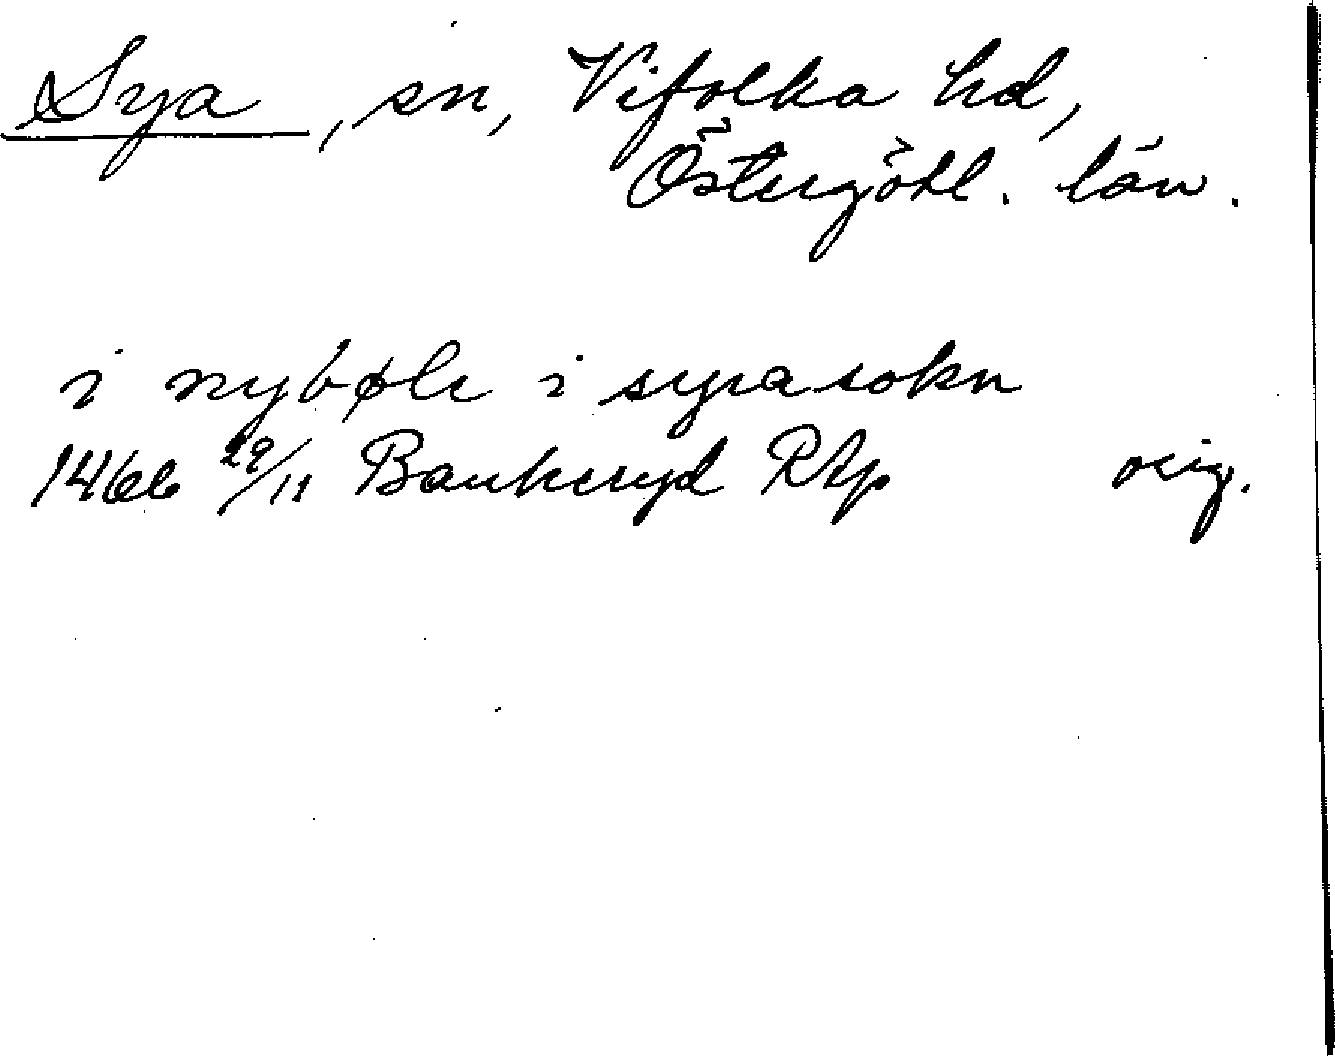 Sya, sn, Vifolka hd,
Östergötl. län.
i nybøle i syrasokn
1466 29/11 Bankeryd RAp orig.